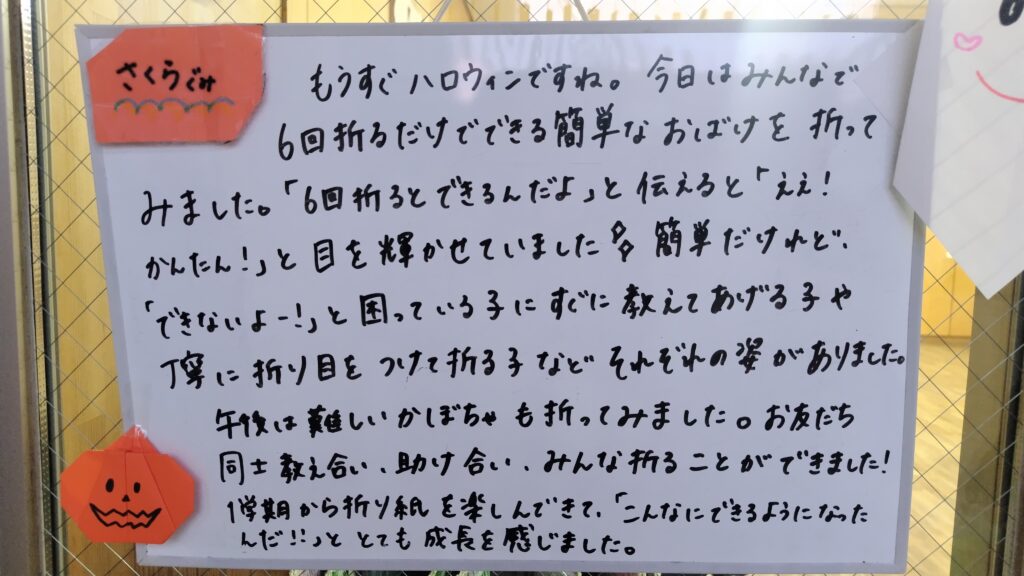 さくらぐみ
もうすぐハロウィンですね。今日はみんなで
6回折るだけでできる簡単なおばけを折って
みました。「6回折るとできるんだよ」と伝えると「ええ!
かんたん!」と目を輝かせていました 簡単だけれど、
「できないよー!」と困っている子にすぐに教えてあげる子や
丁寧に折り目をつけて折る子などそれぞれの姿がありました。
午後は難しいかぼちゃも折ってみました。お友だち
同士教え合い、助け合い、みんな折ることができました!
1学期から折り紙を楽しんできて、「こんなにできるようになった
んだ!!」ととても成長を感じました。